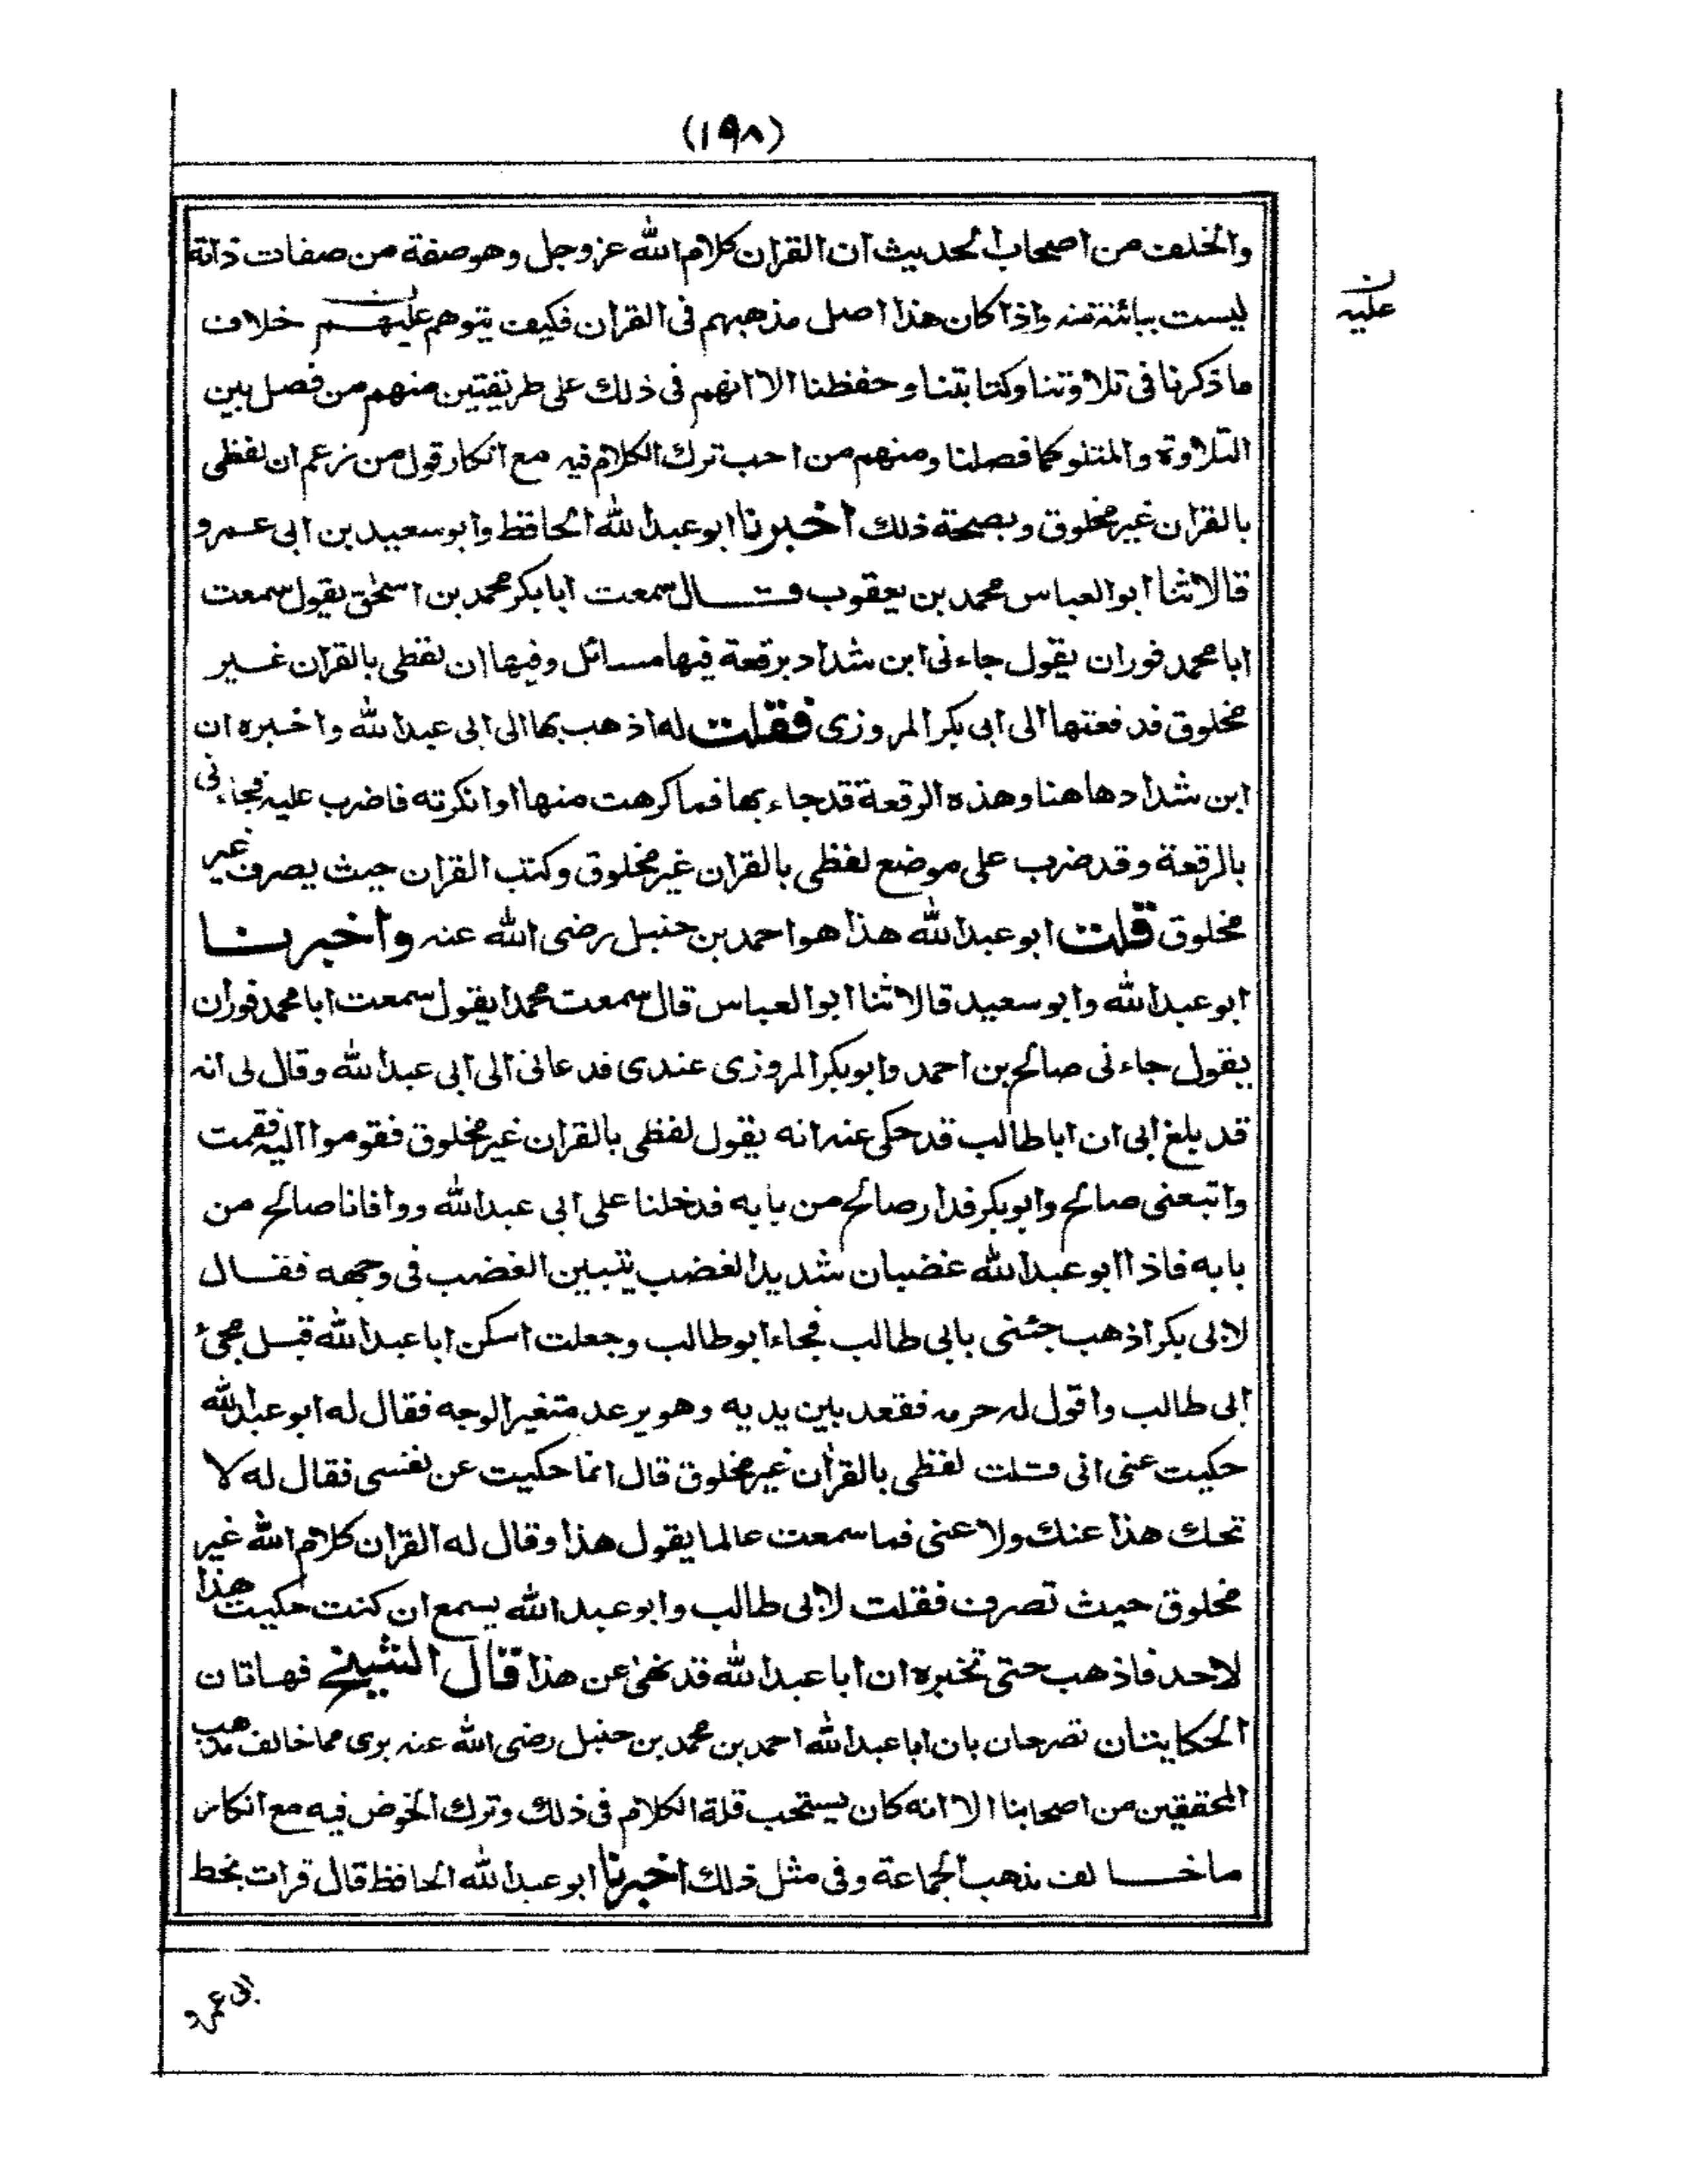 (١٩٨)
والخلف من اصحاب الحديث ان القران كلام الله عز وجل وهو صفة من صفات ذاته
ليست ببائنة منه واذا كان هذا اصل مذهبهم فى القران فكيف يتوهم عليهم خلاف
ن
عليه
ما ذكرنا فى تلاوتنا وكتابتنا وحفظنا الا انهم فى ذلك على طريقتين منهم من فصل بين
التلاوة والمتلو كما فصلنا ومنهم من احب ترك الكلام فيه مع انكار قول من زعم ان لفظى
بالقران غير مخلوق وبصحة ذلك اخبرنا ابو عبد الله الحافظ وابو سعيد بن ابى عمرو
قالا ثنا ابو العباس محمد بن يعقوب قال سمعت ابا بكر محمد بن اسحٰق يقول سمعت
ابا محمد فوران يقول جاءنى ابن شداد برقعة فيها مسائل وفيها ان لفظى بالقران غير
مخلوق فدفعتها الى ابى بكر المروزى فقلت له اذهب بها الى ابى عبد الله واخبره ان
ابن شداد هاهنا وهذه الرقعة قد جاء بها فما كرهت منها او انكرته فاضرب عليه فجاءنى
بالرقعة وقد ضرب على موضع لفظى بالقران غير مخلوق وكتب القران حيث يصرف غير
مخلوق قلت ابو عبد الله هذا هو احمد بن حنبل رضى الله عنه واخبرنا
ابو عبد الله وابو سعيد قالا ثنا ابو العباس قال سمعت محمدا يقول سمعت ابا محمد فوران
يقول جاءنى صالح بن احمد وابو بكر المروزى عندى فدعانى الى ابى عبد الله وقال لى انه
قد بلغ ابى ان ابا طالب قد حكى عنه انه يقول لفظى بالقران غير مخلوق فقوموا اليه فقمت
واتبعنى صالح وابو بكر فدار صالح من بابه فدخلنا على ابى عبد الله ووافانا صالح من
بابه فاذا ابو عبد الله غضبان شديد الغضب يتبين الغضب فى وجهه فقال
لابى بكر اذهب جئنى بابى طالب فجاء ابو طالب وجعلت اسكن ابا عبد الله قبل مجئ
ابى طالب واقول له حرمه فقعد بين يديه وهو يرعد متغير الوجه فقال له ابو عبد الله
حكيت عنى انى قلت لفظى بالقرآن غير مخلوق قال انما حكيت عن نفسى فقال له لا
تحك هذا عنك ولا عنى فما سمعت عالما يقول هذا وقال له القران كلام الله غير
مخلوق حيث تصرف فقلت لابى طالب وابو عبد الله يسمع ان كنت حكيت هذا
لاحد فاذهب حتى تخبره ان ابا عبد الله قد نهى عن هذا قال الشيخ فهاتان
الحكايتان تصرحان بان ابا عبد الله احمد بن محمد بن حنبل رضى الله عنه برى مما خالف مذهب
المحققين من اصحابنا الا انه كان يستحب قلة الكلام فى ذلك وترك الخوض فيه مع انكار
ما خالف مذهب الجماعة وفى مثل ذلك اخبرنا ابو عبد الله الحافظ قال قرات بخط
ابى عمرو